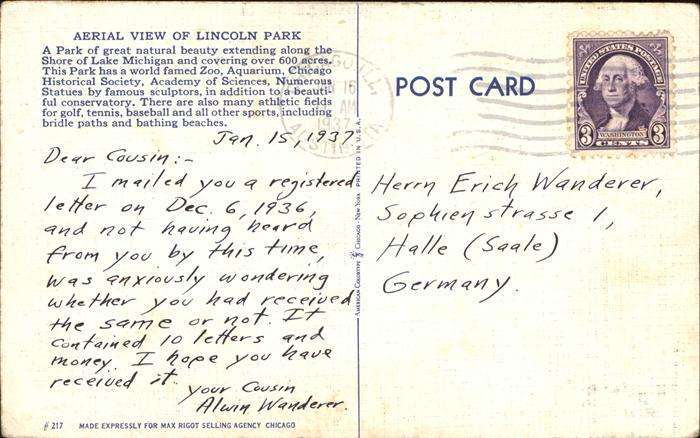 AERIAL VIEW OF LINCOLN PARK
A Park of great natural beauty extending along the
Shore of Lake Michigan and covering over 600 acres.
This Park has a world famed Zoo, Aquarium, Chicago
Historical Society, Academy of Sciences, Numerous
Statues by famous sculptors, in addition to a beauti-
ful conservatory. There are also many athletic fields
for golf, tennis, baseball and all other sports, including
bridle paths and bathing beaches.
Jan. 15, 1937
Dear Cousin:-
I mailed you a registered
letter on Dec. 6, 1936,
and not having heard
from you by this time,
was anxiously wondering
whether you had received
the same or not. It
contained 10 letters and
money. I hope you have
received it.
your Cousin
Alwin Wanderer.
#217 MADE EXPRESSLY FOR MAX RIGOT SELLING AGENCY CHICAGO
AMERICAN COLORTYPE CHICAGO - NEW YORK PRINTED IN U.S.A.
16
AM
1937
POST CARD
UNITED STATES POSTAGE
WASHINGTON
3 CENTS 3
Herrn Erich Wanderer,
Sophienstrasse 1,
Halle (Saale)
Germany.